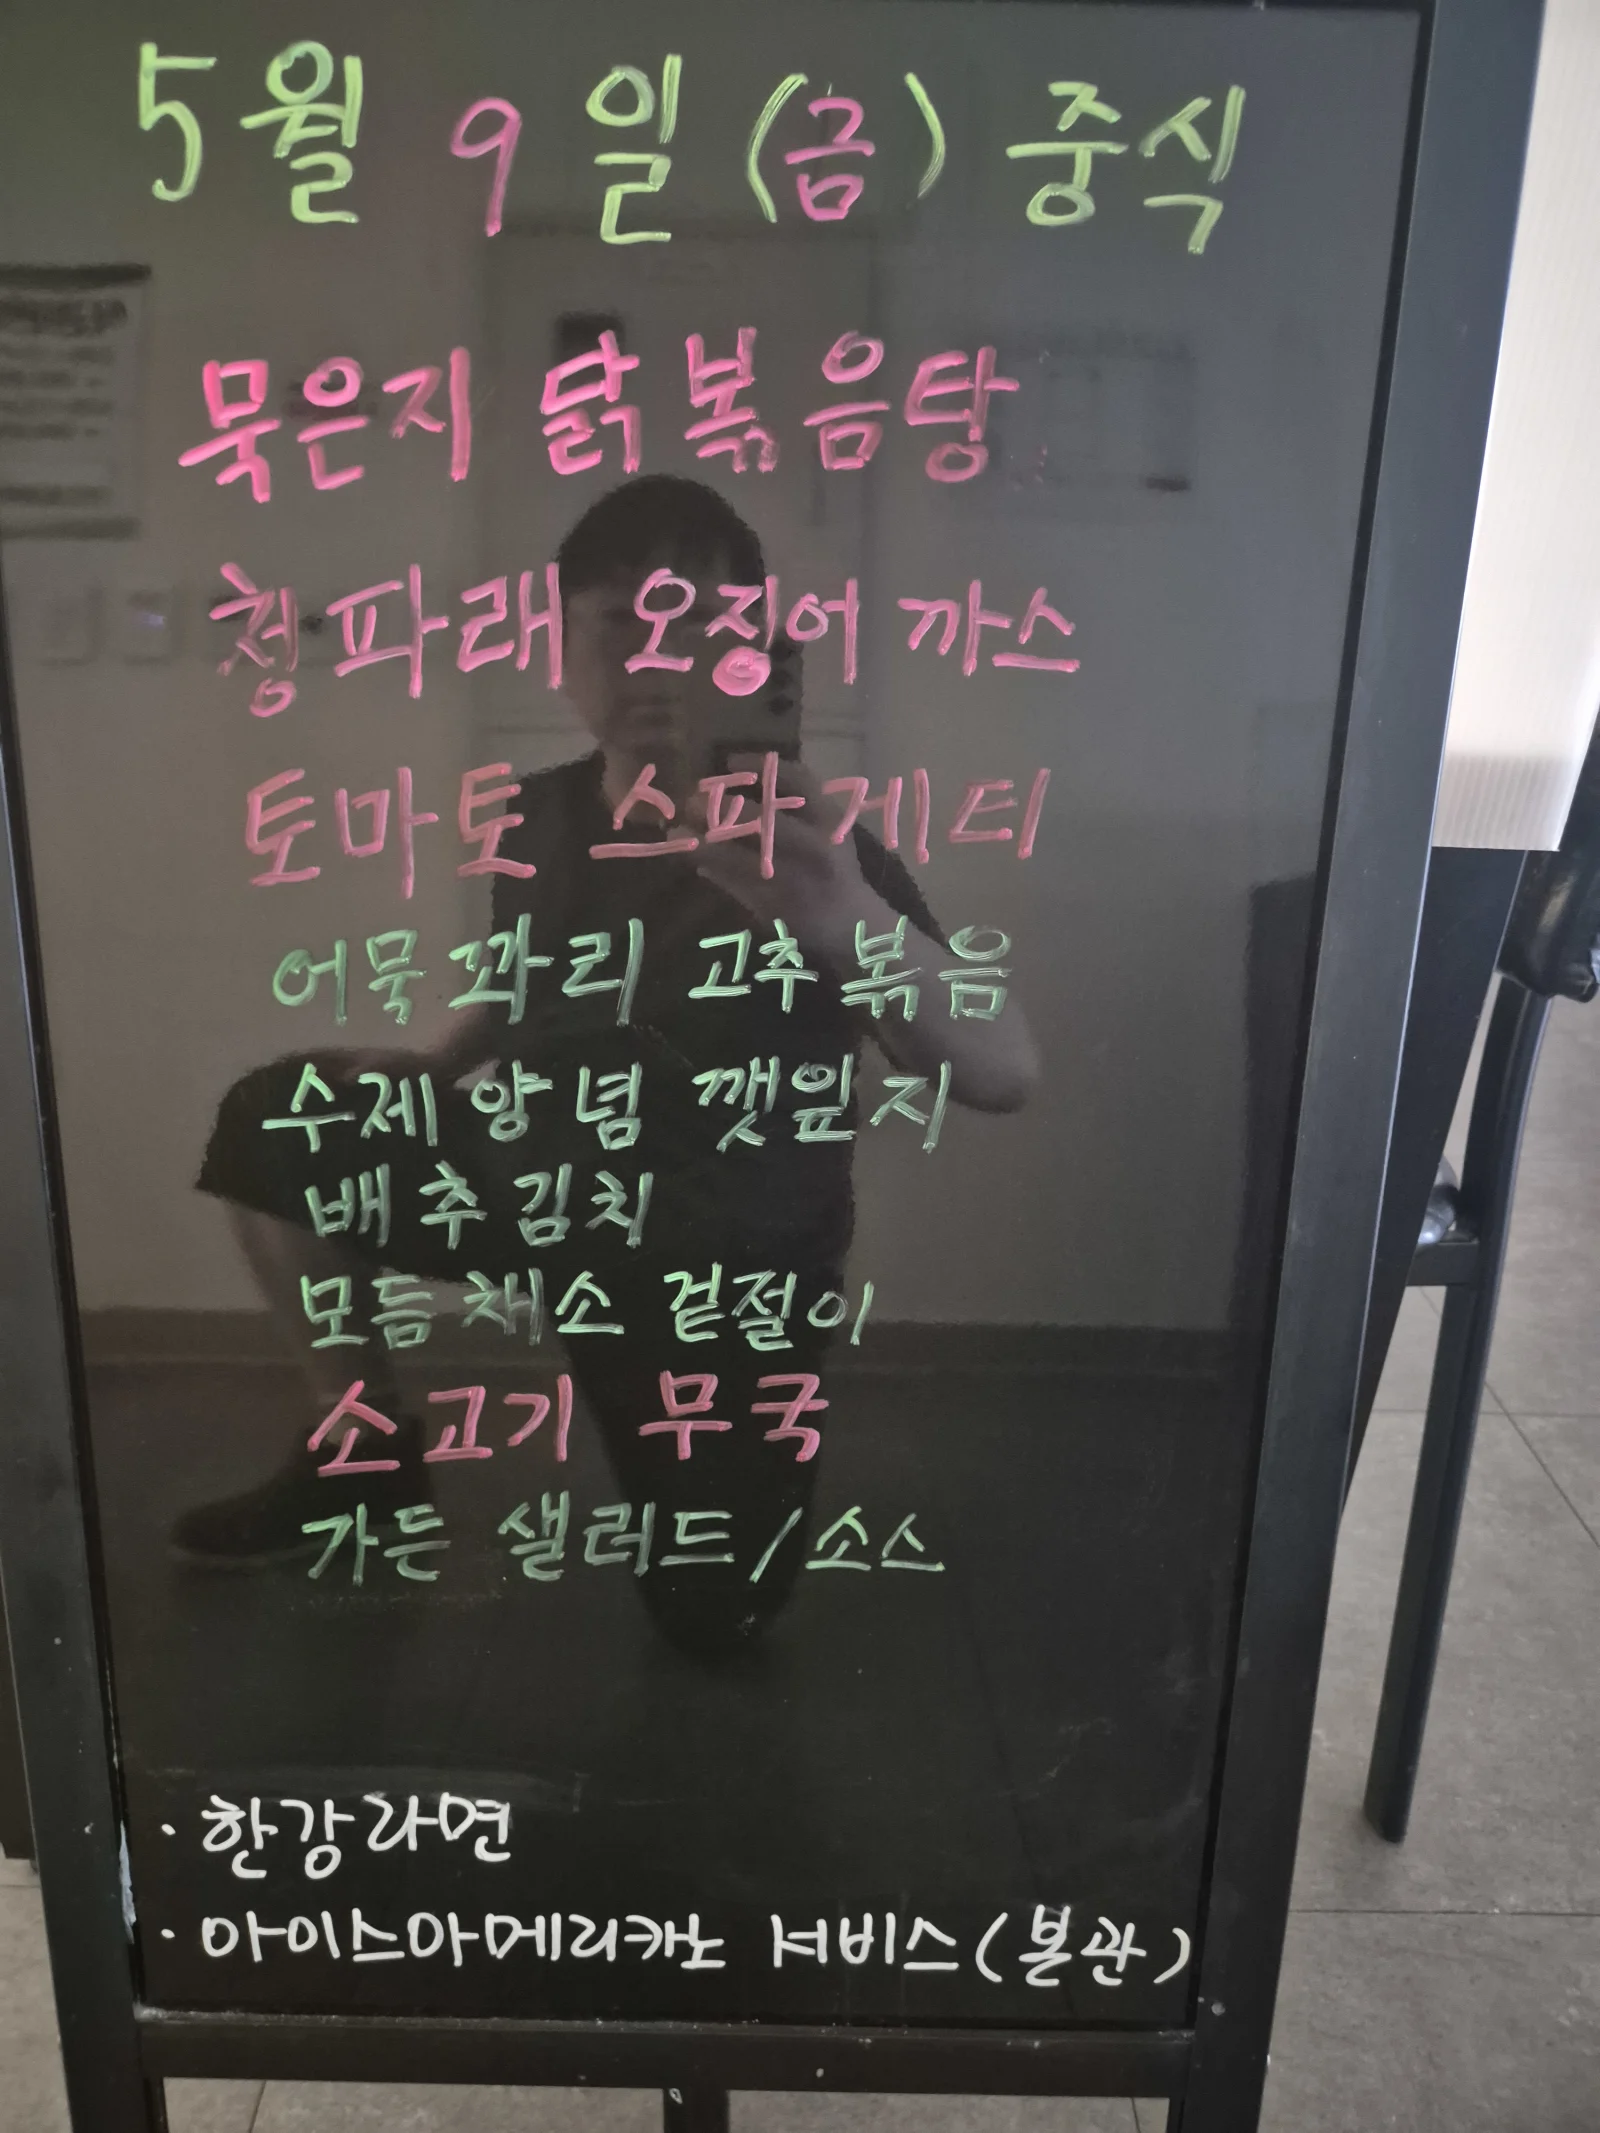 5월 9일 (금) 중식
묵은지 닭볶음탕
청파래 오징어 까스
토마토 스파게티
어묵꽈리 고추볶음
수제양념 깻잎지
배추김치
모듬채소 겉절이
소고기 무국
가든 샐러드/소스
· 한강라면
· 아이스아메리카노 서비스(본관)